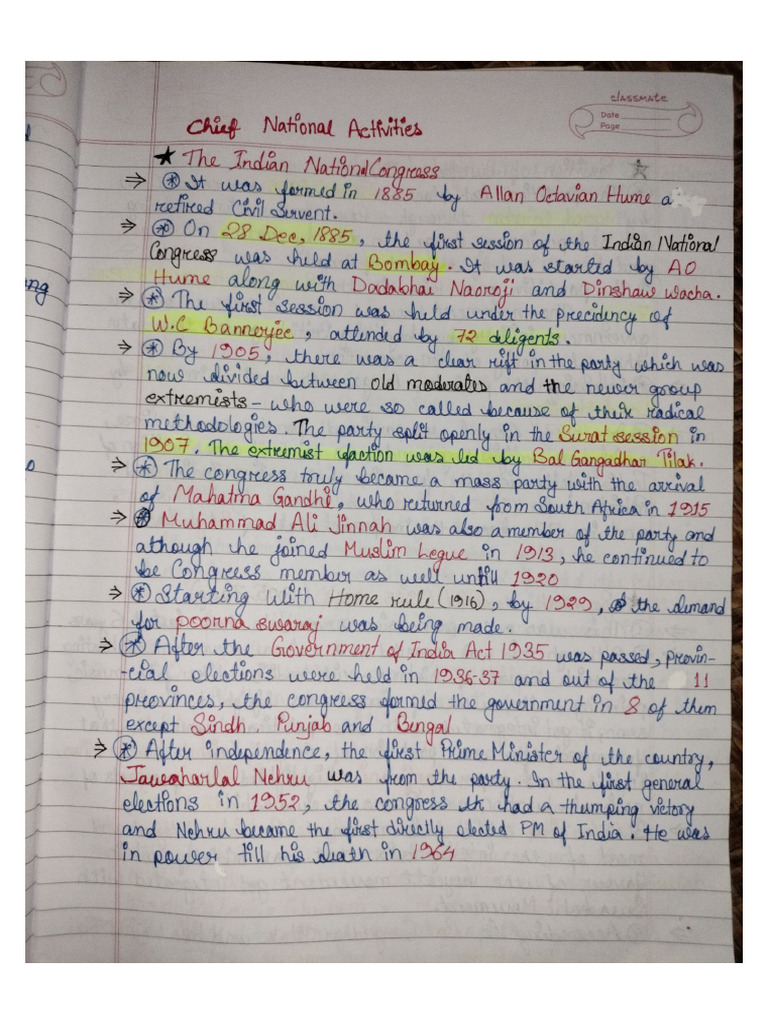 classmate
Date
Page
Chief National Activities
★ The Indian National Congress
⇒ * It was formed in 1885 by Allan Octavian Hume a
retired Civil Servent.
⇒ * On 28 Dec, 1885, the first session of the Indian National
Congress was held at Bombay. It was started by AO
Hume along with Dadabhai Naoroji and Dinshaw wacha.
⇒ * The first session was held under the precidency of
W.C Bannerjee, attended by 72 deligents.
⇒ * By 1905, there was a clear rift in the party which was
now divided between old moderates and the newer group
extremists - who were so called because of their radical
methodologies. The party split openly in the Surat session in
1907. The extremist faction was led by Bal Gangadhar Tilak.
⇒ * The congress truly became a mass party with the arrival
of Mahatma Gandhi, who returned from South Africa in 1915
⇒ * Muhammad Ali Jinnah was also a member of the party and
although he joined Muslim Legue in 1913, he continued to
be Congress member as well until 1920
⇒ * Starting with Home rule (1916), by 1929, the demand
for poorna swaraj was being made.
⇒ * After the Government of India Act 1935 was passed, provin-
-cial elections were held in 1936-37 and out of the 11
provinces, the congress formed the government in 8 of them
except Sindh, Punjab and Bengal
⇒ * After independence, the first Prime Minister of the country,
Jawaharlal Nehru was from the party. In the first general
elections in 1952, the congress th had a thumping victory
and Nehru became the first directly elected PM of India. He was
in power till his death in 1964